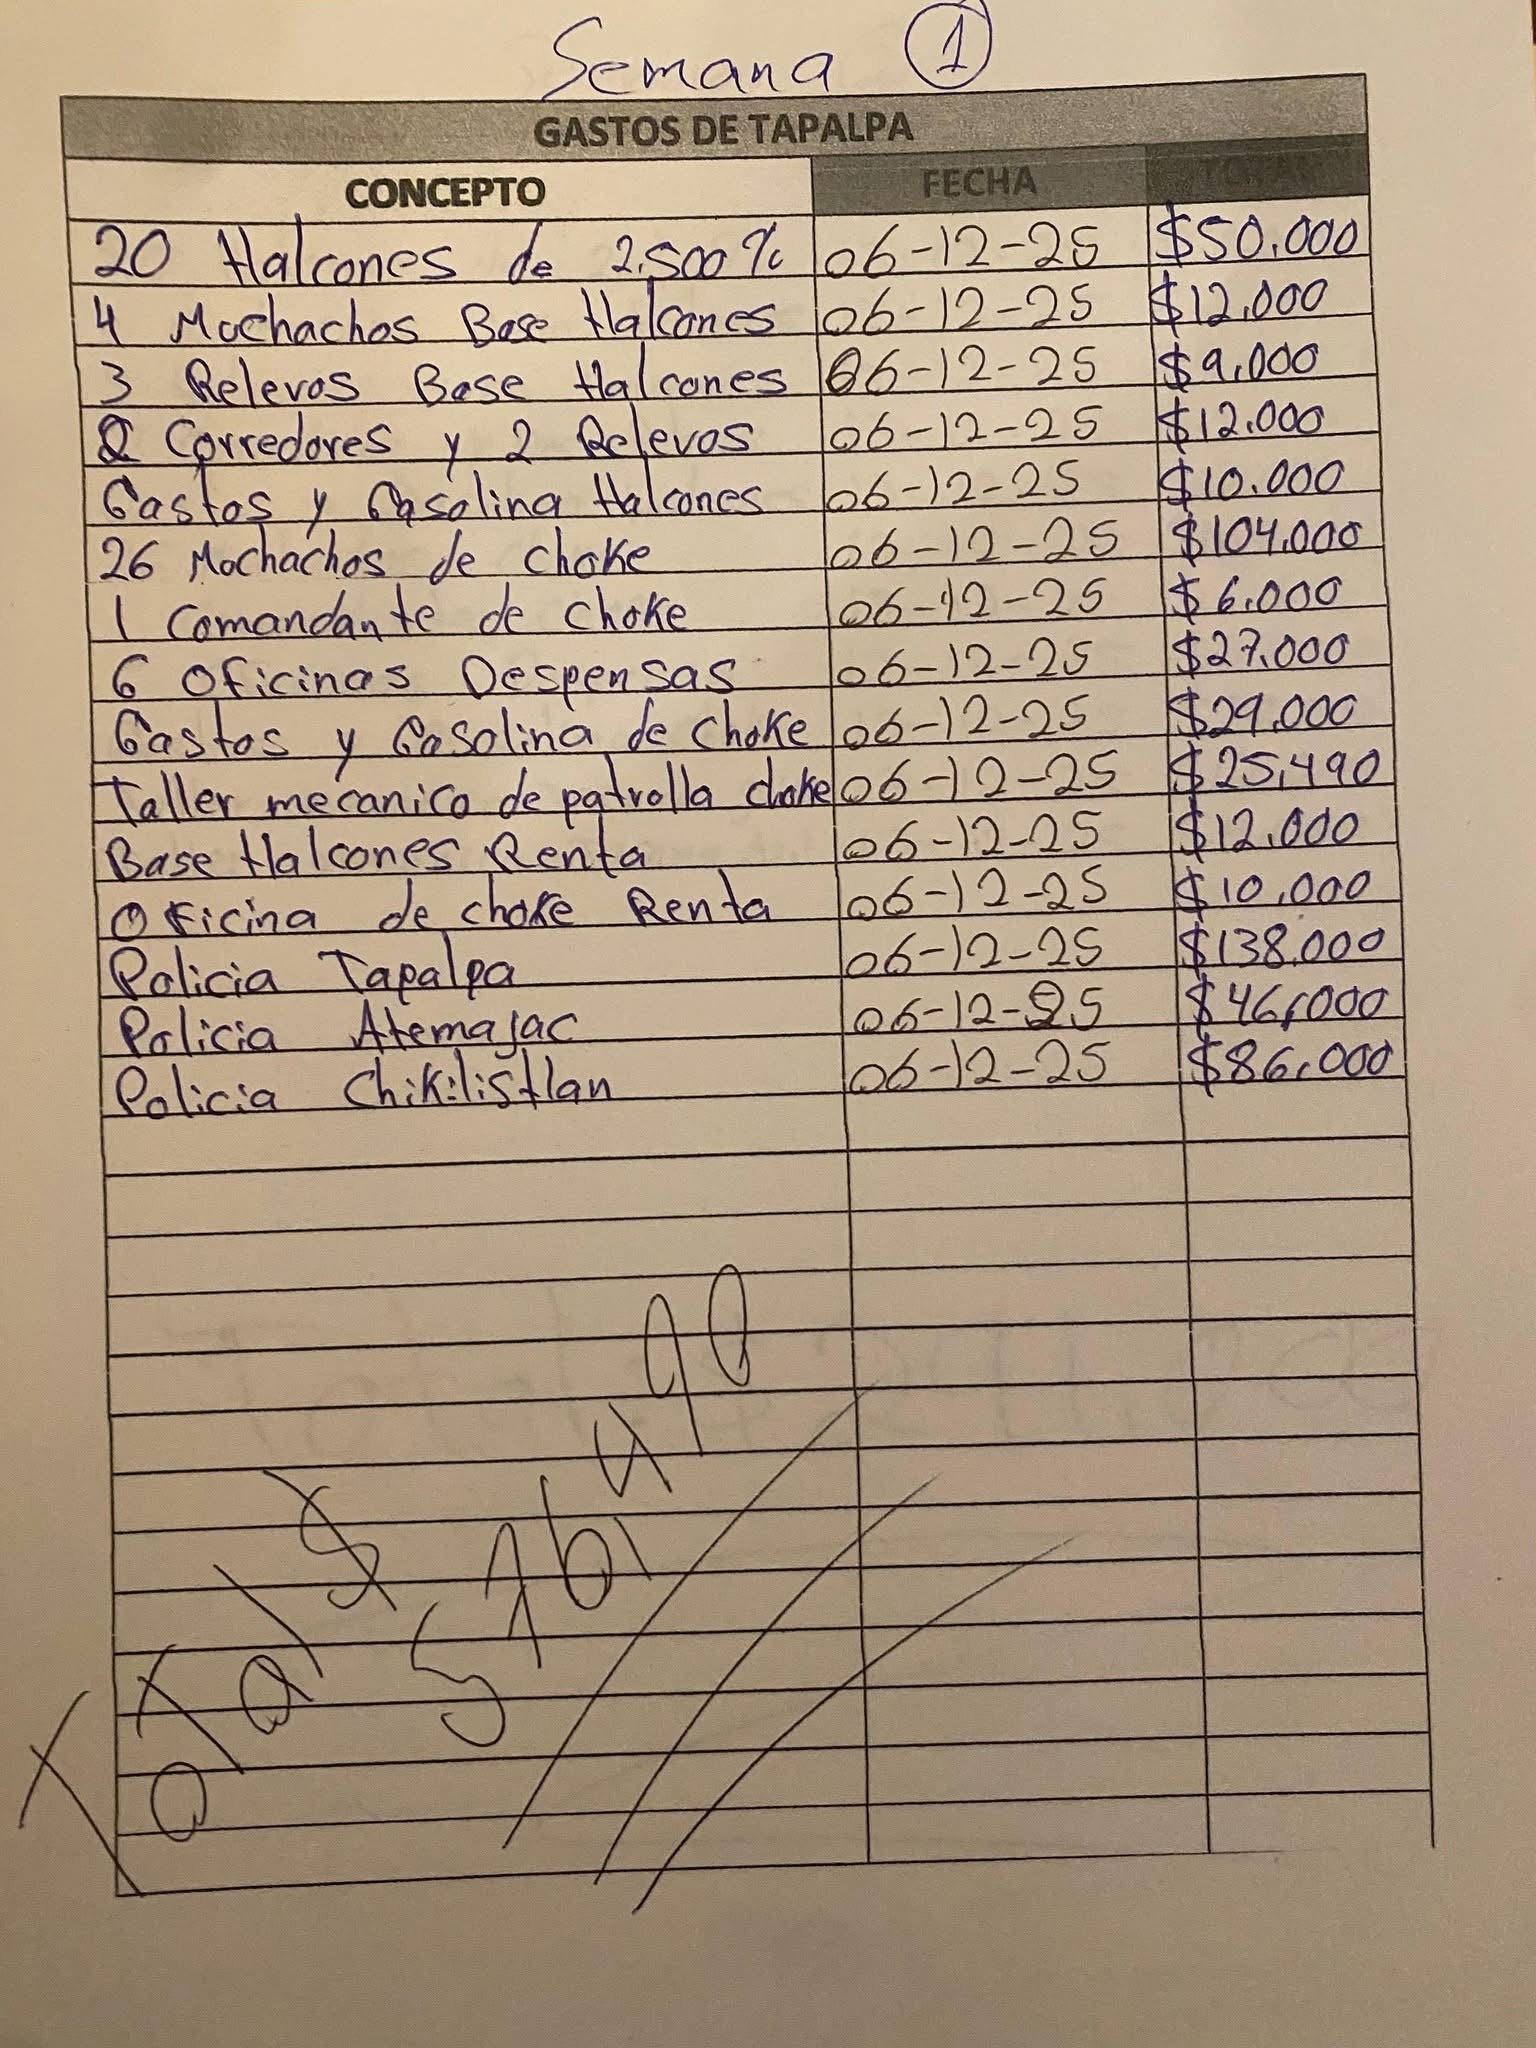 Semana 1
GASTOS DE TAPALPA
CONCEPTO FECHA TOTAL
20 Halcones de 2,500 % 06-12-25 $50.000
4 Muchachos Base Halcones 06-12-25 $12.000
3 Relevos Base Halcones 06-12-25 $9,000
2 Corredores y 2 Relevos 06-12-25 $12.000
Gastos y Gasolina Halcones 06-12-25 $10.000
26 Mochachos de choke 06-12-25 $104.000
1 Comandante de choke 06-12-25 $6.000
6 Oficinas Despensas 06-12-25 $27.000
Gastos y Gasolina de choke 06-12-25 $29,000
Taller mecanico de patrolla choke 06-12-25 $25,490
Base Halcones Renta 06-12-25 $12.000
Oficina de choke Renta 06-12-25 $10,000
Policia Tapalpa 06-12-25 $138.000
Policia Atemajac 06-12-25 $46,000
Policia Chikilistlan 06-12-25 $86,000
Total $ 576,490